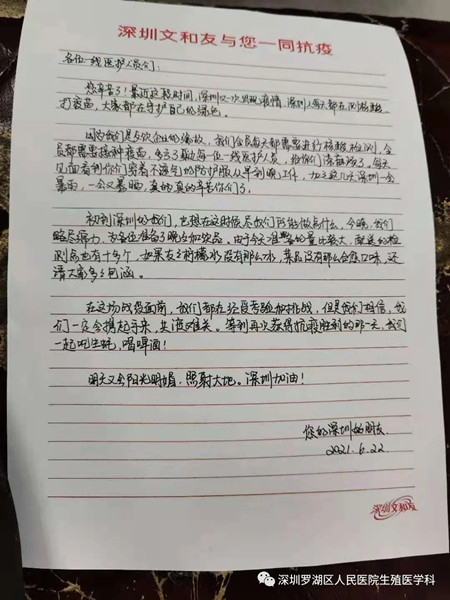 深圳文和友与您一同抗疫
各位一线医护人员们：
您辛苦了！最近这段时间，深圳又一次出现疫情，深圳人每天都在测核酸，
打疫苗，大家都在守护自己的绿色。
因为我们是餐饮企业的缘故，我们全员每天都需要进行核酸检测，全
员都需要接种疫苗，辛苦了每位一线医护人员，给你们添麻烦了。每天
见面看到你们穿着不透气的防护服从早到晚工作，加之这几天深圳一会
暴雨，一会又暴晒，真的真的辛苦你们了。
初到深圳的我们，也想在这时候尽我们所能做点什么，今晚，我们
略尽绵力，为各位准备了晚点和饮品。由于今天准备的量比较大，配送的检
测点也有十多个，如果友的柠檬水没有那么冰，菜品没有那么合您口味，还
请大家多多包涵。
在这场战疫面前，我们都在经受考验和挑战，但是我们相信，我
们一定会携起手来，共渡难关。等到再次获得抗疫胜利的那一天，我们
一起吃生蚝，喝啤酒！
明天又会阳光明媚，照射大地。深圳加油！
您的深圳的朋友
2021.6.22
深圳文和友
深圳罗湖区人民医院生殖医学科